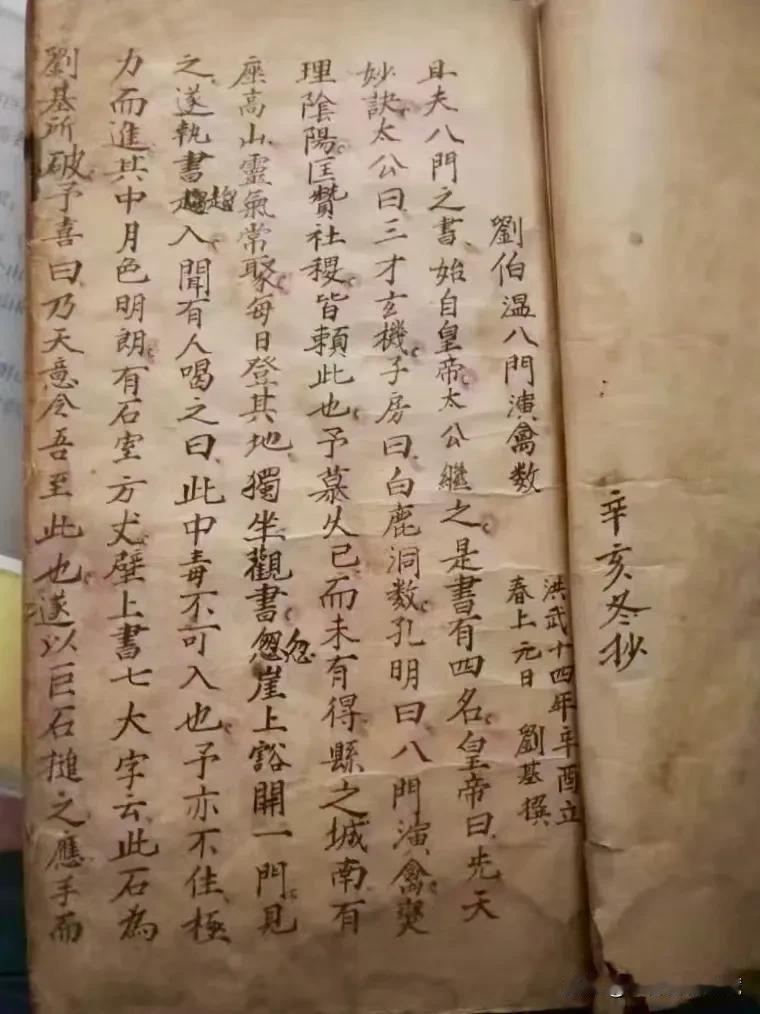 辛亥冬抄
劉伯温八門演禽数
洪武十四年辛酉立
春上元日 劉基撰
且夫八門之書、始自皇帝太公繼之是書有四名皇帝曰先天
妙訣太公曰三才玄機子房曰白鹿洞数孔明曰八門演禽奥
理陰陽匡贊社稷皆頼此也予慕久已而未有得縣之城南有
座高山靈氣常聚每日登其地獨坐觀書忽崖上豁開一門見
之遂執書趨入聞有人喝之曰此中毒不可入也予亦不佳極
力而進其中月色明朗有石室方丈壁上書七大字云此石為
劉基所破予喜曰乃天意令吾至此也遂以巨石搥之應手而